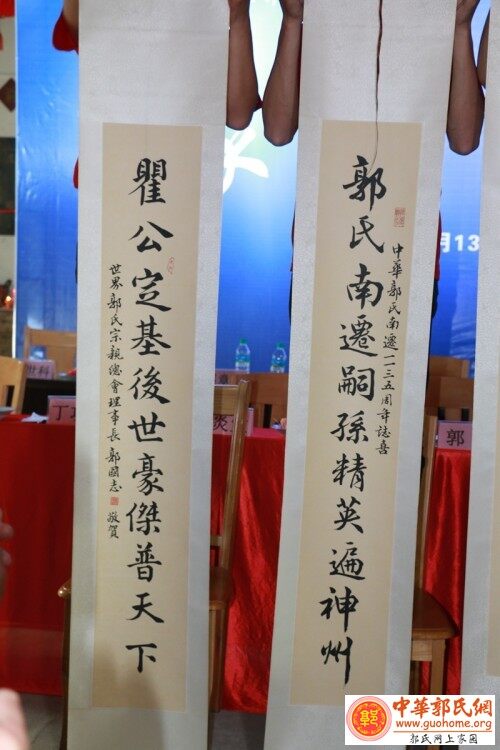 郭氏南遷嗣孫精英遍神州
中華郭氏南遷一一三五周年誌喜
瞿公定基後世豪傑普天下
世界郭氏宗親總會理事長郭國志
敬賀
月13
郭
中華郭氏網
www.guohome.org
郭氏网上家园